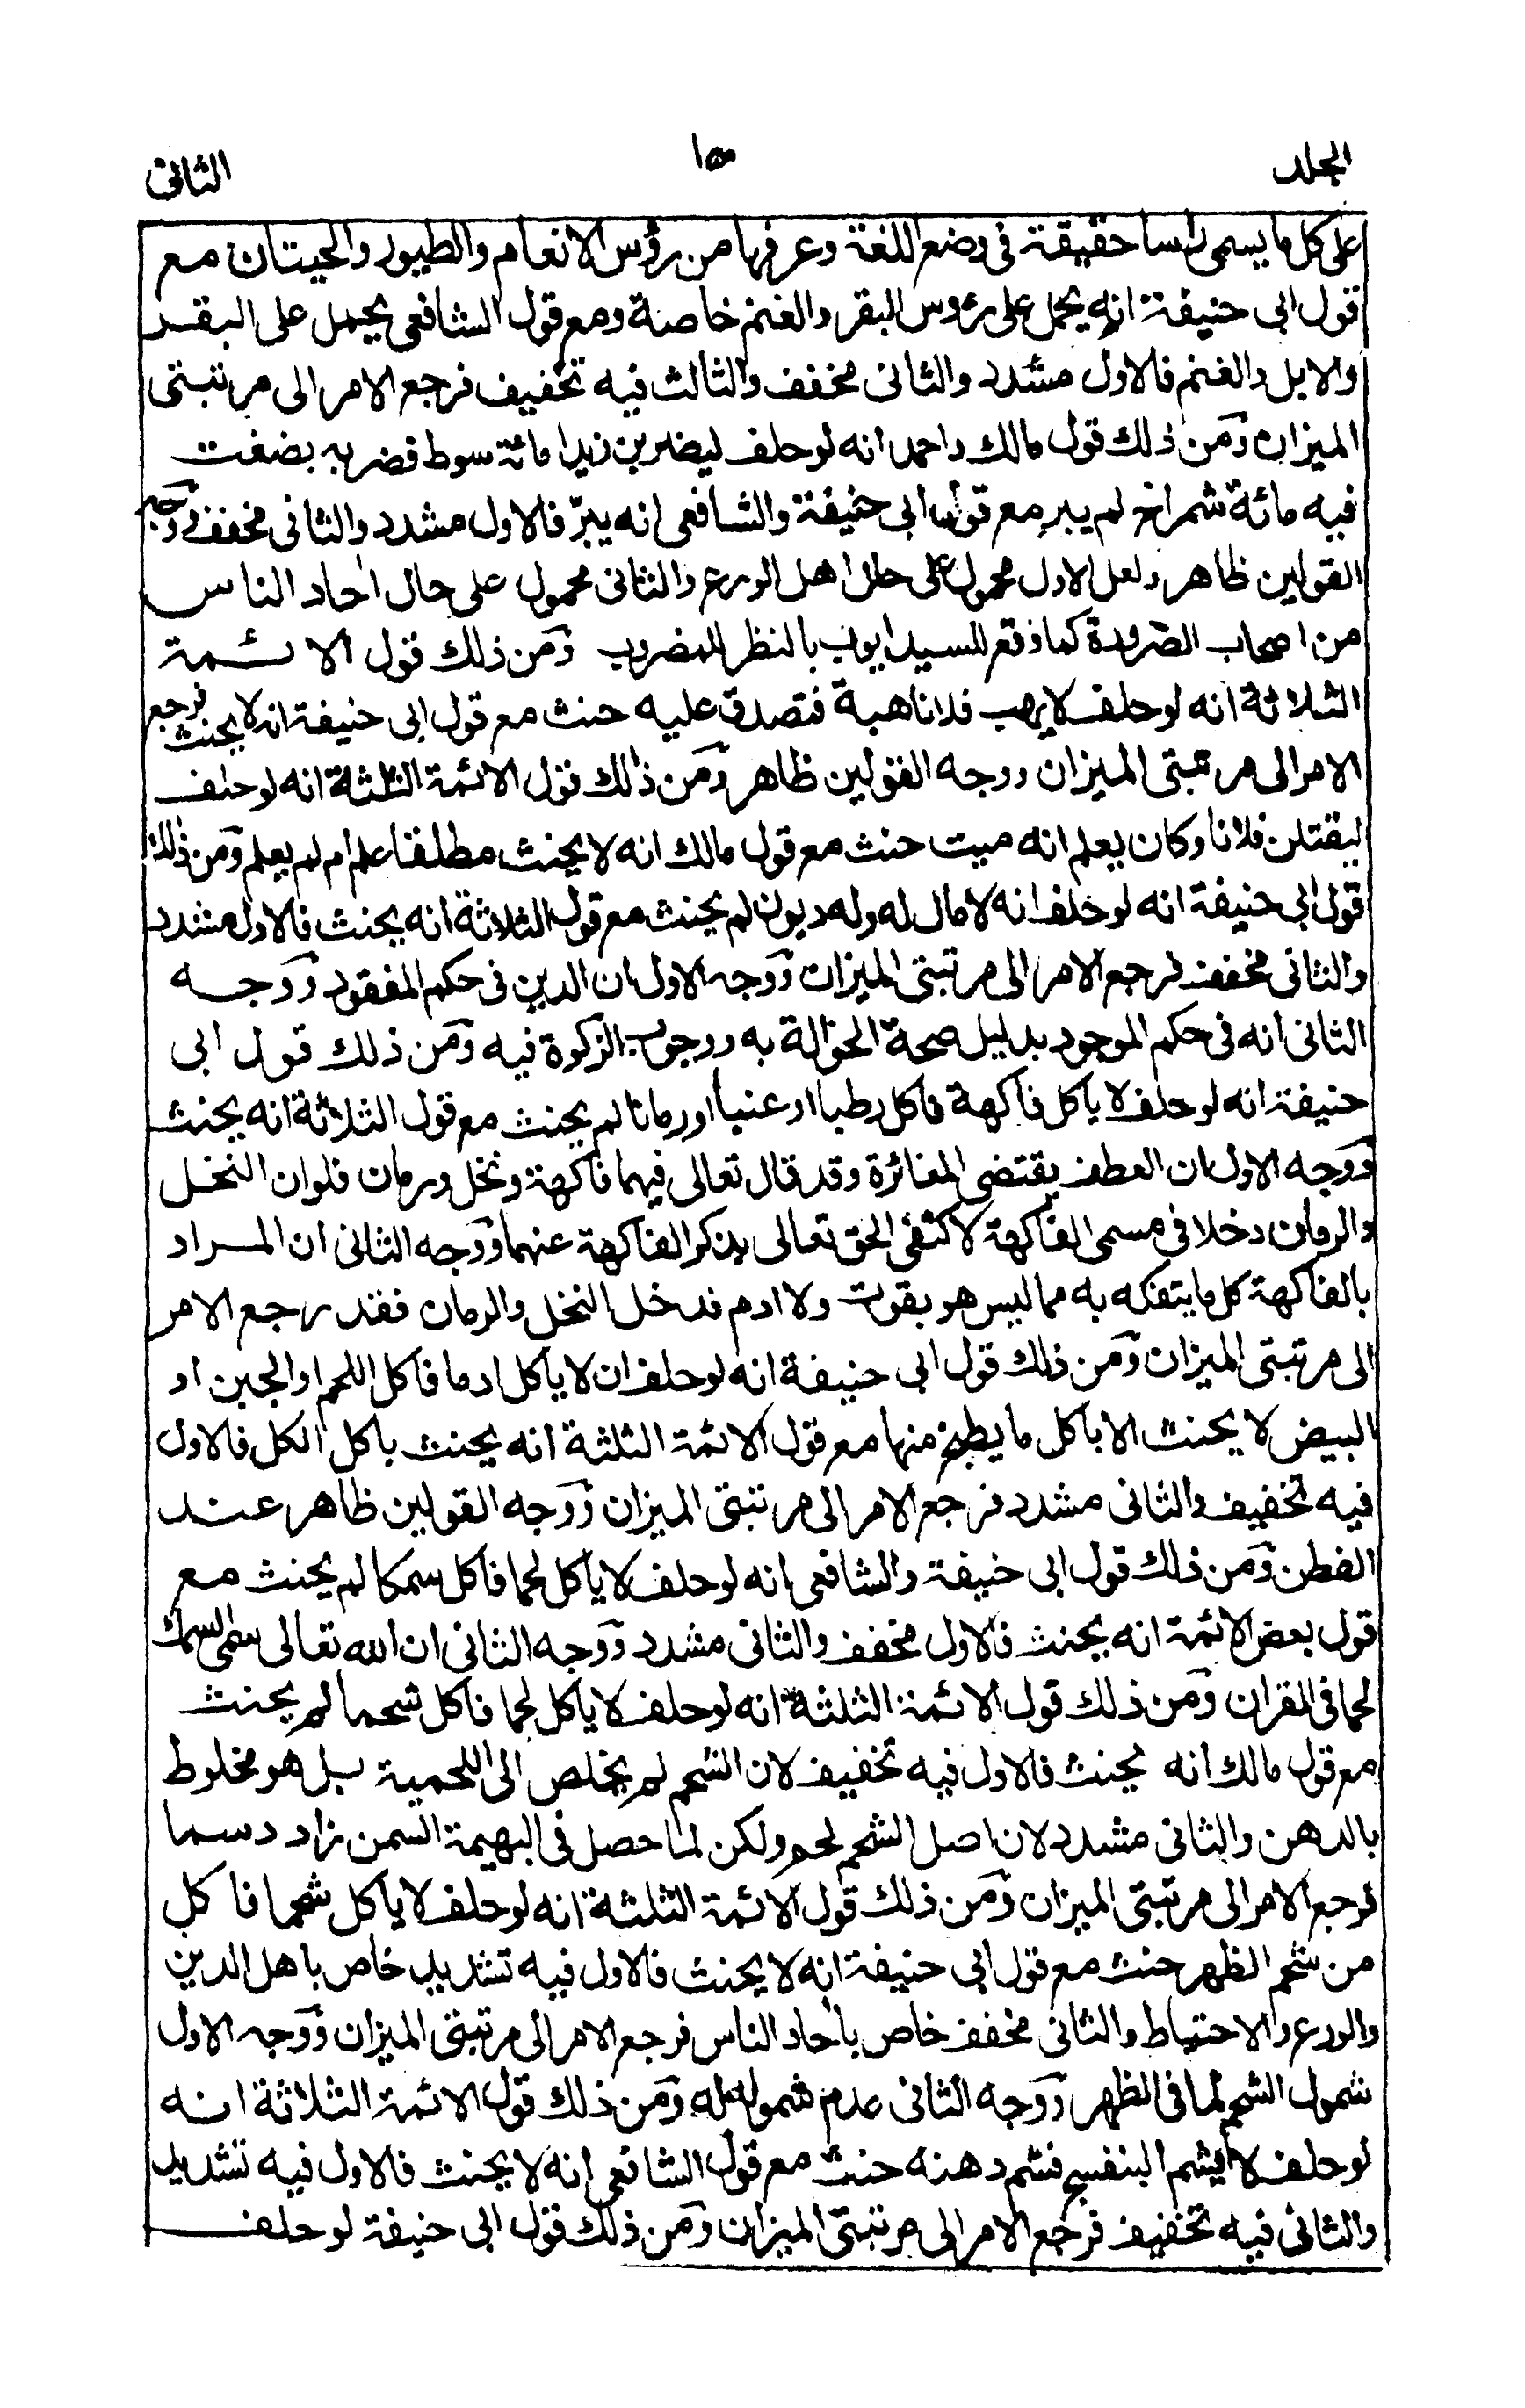 الجلد ١٥٠ الثانى
على كل ما يسمى راسا حقيقة فى وضع اللغة وعرفها من رؤس الانعام والطيور والحيتان مع
قول ابى حنيفة انه يحمل على رؤس البقر والغنم خاصة ومع قول الشافعى يحمل على البقر
والابل والغنم فالاول مشدد والثانى مخفف والثالث فيه تخفيف فرجع الامر الى مرتبتى
الميزان ومن ذلك قول مالك واحمد انه لو حلف ليضربن زيدا مائة سوط فضربه بضغث
فيه مائة شمراخ لم يبر مع قول ابى حنيفة والشافعى انه يبرّ فالاول مشدد والثانى مخفف ووجه
القولين ظاهر ولعل الاول محمول على حال اهل الورع والثانى محمول على حال احاد الناس
من اصحاب الضرورة كما وقع للسيد ايوب بالنظر للمضروب ومن ذلك قول الائمة
الثلاثة انه لو حلف لا يهب فلانا هبة فتصدق عليه حنث مع قول ابى حنيفة انه لا يحنث فرجع
الامر الى مرتبتى الميزان ووجه القولين ظاهر ومن ذلك قول الائمة الثلثة انه لو حلف
ليقتلن فلانا وكان يعلم انه ميت حنث مع قول مالك انه لا يحنث مطلقا علم ام لم يعلم ومن ذلك
قول ابى حنيفة انه لو حلف انه لا مال له وله ديون لم يحنث مع قول الثلاثة انه يحنث فالاول مشدد
والثانى مخفف فرجع الامر الى مرتبتى الميزان ووجه الاول ان الدين فى حكم المفقود ووجه
الثانى انه فى حكم الموجود بدليل صحة الحوالة به ووجوب الزكوة فيه ومن ذلك قول ابى
حنيفة انه لو حلف لا ياكل فاكهة فاكل رطبا او عنبا او رمانا لم يحنث مع قول الثلاثة انه يحنث
ووجه الاول ان العطف يقتضى المغائرة وقد قال تعالى فيهما فاكهة ونخل ورمان فلو ان النخل
والرمان دخلا فى مسمى الفاكهة لاكتفى الحق تعالى بذكر الفاكهة عنهما ووجه الثانى ان المراد
بالفاكهة كل ما يتفكه به مما ليس هو بقوت ولا ادم فدخل النخل والرمان فقد رجع الامر
الى مرتبتى الميزان ومن ذلك قول ابى حنيفة انه لو حلف ان لا ياكل ادما فاكل اللحم او الجبن او
البيض لا يحنث الا باكل ما يطبخ منها مع قول الائمة الثلثة انه يحنث باكل الكل فالاول
فيه تخفيف والثانى مشدد فرجع الامر الى مرتبتى الميزان ووجه القولين ظاهر عند
الفطن ومن ذلك قول ابى حنيفة والشافعى انه لو حلف لا ياكل لحما فاكل سمكا لم يحنث مع
قول بعض الائمة انه يحنث فالاول مخفف والثانى مشدد ووجه الثانى ان الله تعالى سمى السمك
لحما فى القران ومن ذلك قول الائمة الثلثة انه لو حلف لا ياكل لحما فاكل شحما لم يحنث
مع قول مالك انه يحنث فالاول فيه تخفيف لان الشحم لم يخلص الى اللحمية بل هو مخلوط
بالدهن والثانى مشدد لان اصل الشحم لحم ولكن لما حصل فى البهيمة السمن زاد دسما
فرجع الامر الى مرتبتى الميزان ومن ذلك قول الائمة الثلثة انه لو حلف لا ياكل شحما فاكل
من شحم الظهر حنث مع قول ابى حنيفة انه لا يحنث فالاول فيه تشديد خاص باهل الدين
والورع والاحتياط والثانى مخفف خاص باحاد الناس فرجع الامر الى مرتبتى الميزان ووجه الاول
شمول الشحم لما فى الظهر ووجه الثانى عدم شموله له ومن ذلك قول الائمة الثلاثة انه
لو حلف لا يشم البنفسج فشم دهنه حنث مع قول الشافعى انه لا يحنث فالاول فيه تشديد
والثانى فيه تخفيف فرجع الامر الى مرتبتى الميزان ومن ذلك قول ابى حنيفة لو حلف